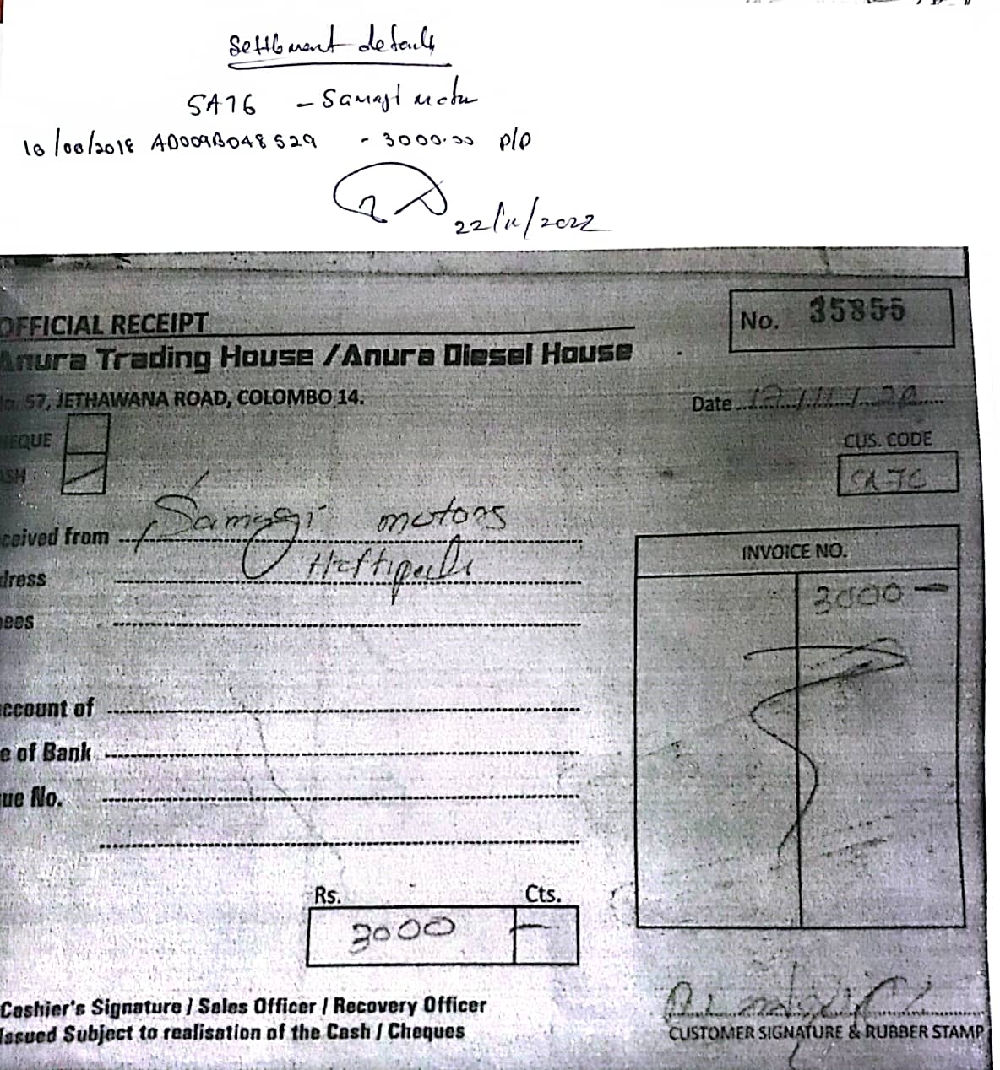 Settlment details
SA76 - Samagi motor
10/08/2018 AD009B048529 - 3000.00 P/P
22/11/2022
OFFICIAL RECEIPT
No. 35855
Anura Trading House / Anura Diesel House
No. 57, JETHAWANA ROAD, COLOMBO 14.
Date
EQUE
CUS. CODE
SH
SA76
ceived from Samagi motors
INVOICE NO.
dress Hettipola
3000 —
ees
ccount of
e of Bank
ue No.
Rs. Cts.
3000 —
Cashier's Signature / Sales Officer / Recovery Officer
Issued Subject to realisation of the Cash / Cheques
CUSTOMER SIGNATURE & RUBBER STAMP